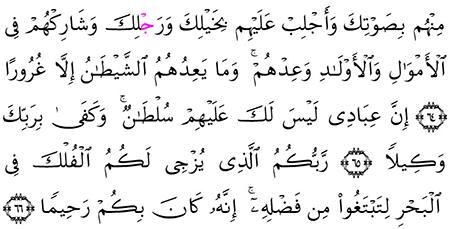 مِنْهُم بِصَوْتِكَ وَأَجْلِبْ عَلَيْهِم بِخَيْلِكَ وَرَجْلِكَ وَشَارِكْهُمْ فِى
ٱلْأَمْوَٰلِ وَٱلْأَوْلَـٰدِ وَعِدْهُمْ ۚ وَمَا يَعِدُهُمُ ٱلشَّيْطَـٰنُ إِلَّا غُرُورًا
﴿٦٤﴾ إِنَّ عِبَادِى لَيْسَ لَكَ عَلَيْهِمْ سُلْطَـٰنٌ ۚ وَكَفَىٰ بِرَبِّكَ
وَكِيلًا ﴿٦٥﴾ رَّبُّكُمُ ٱلَّذِى يُزْجِى لَكُمُ ٱلْفُلْكَ فِى
ٱلْبَحْرِ لِتَبْتَغُوا۟ مِن فَضْلِهِۦٓ ۚ إِنَّهُۥ كَانَ بِكُمْ رَحِيمًا ﴿٦٦﴾